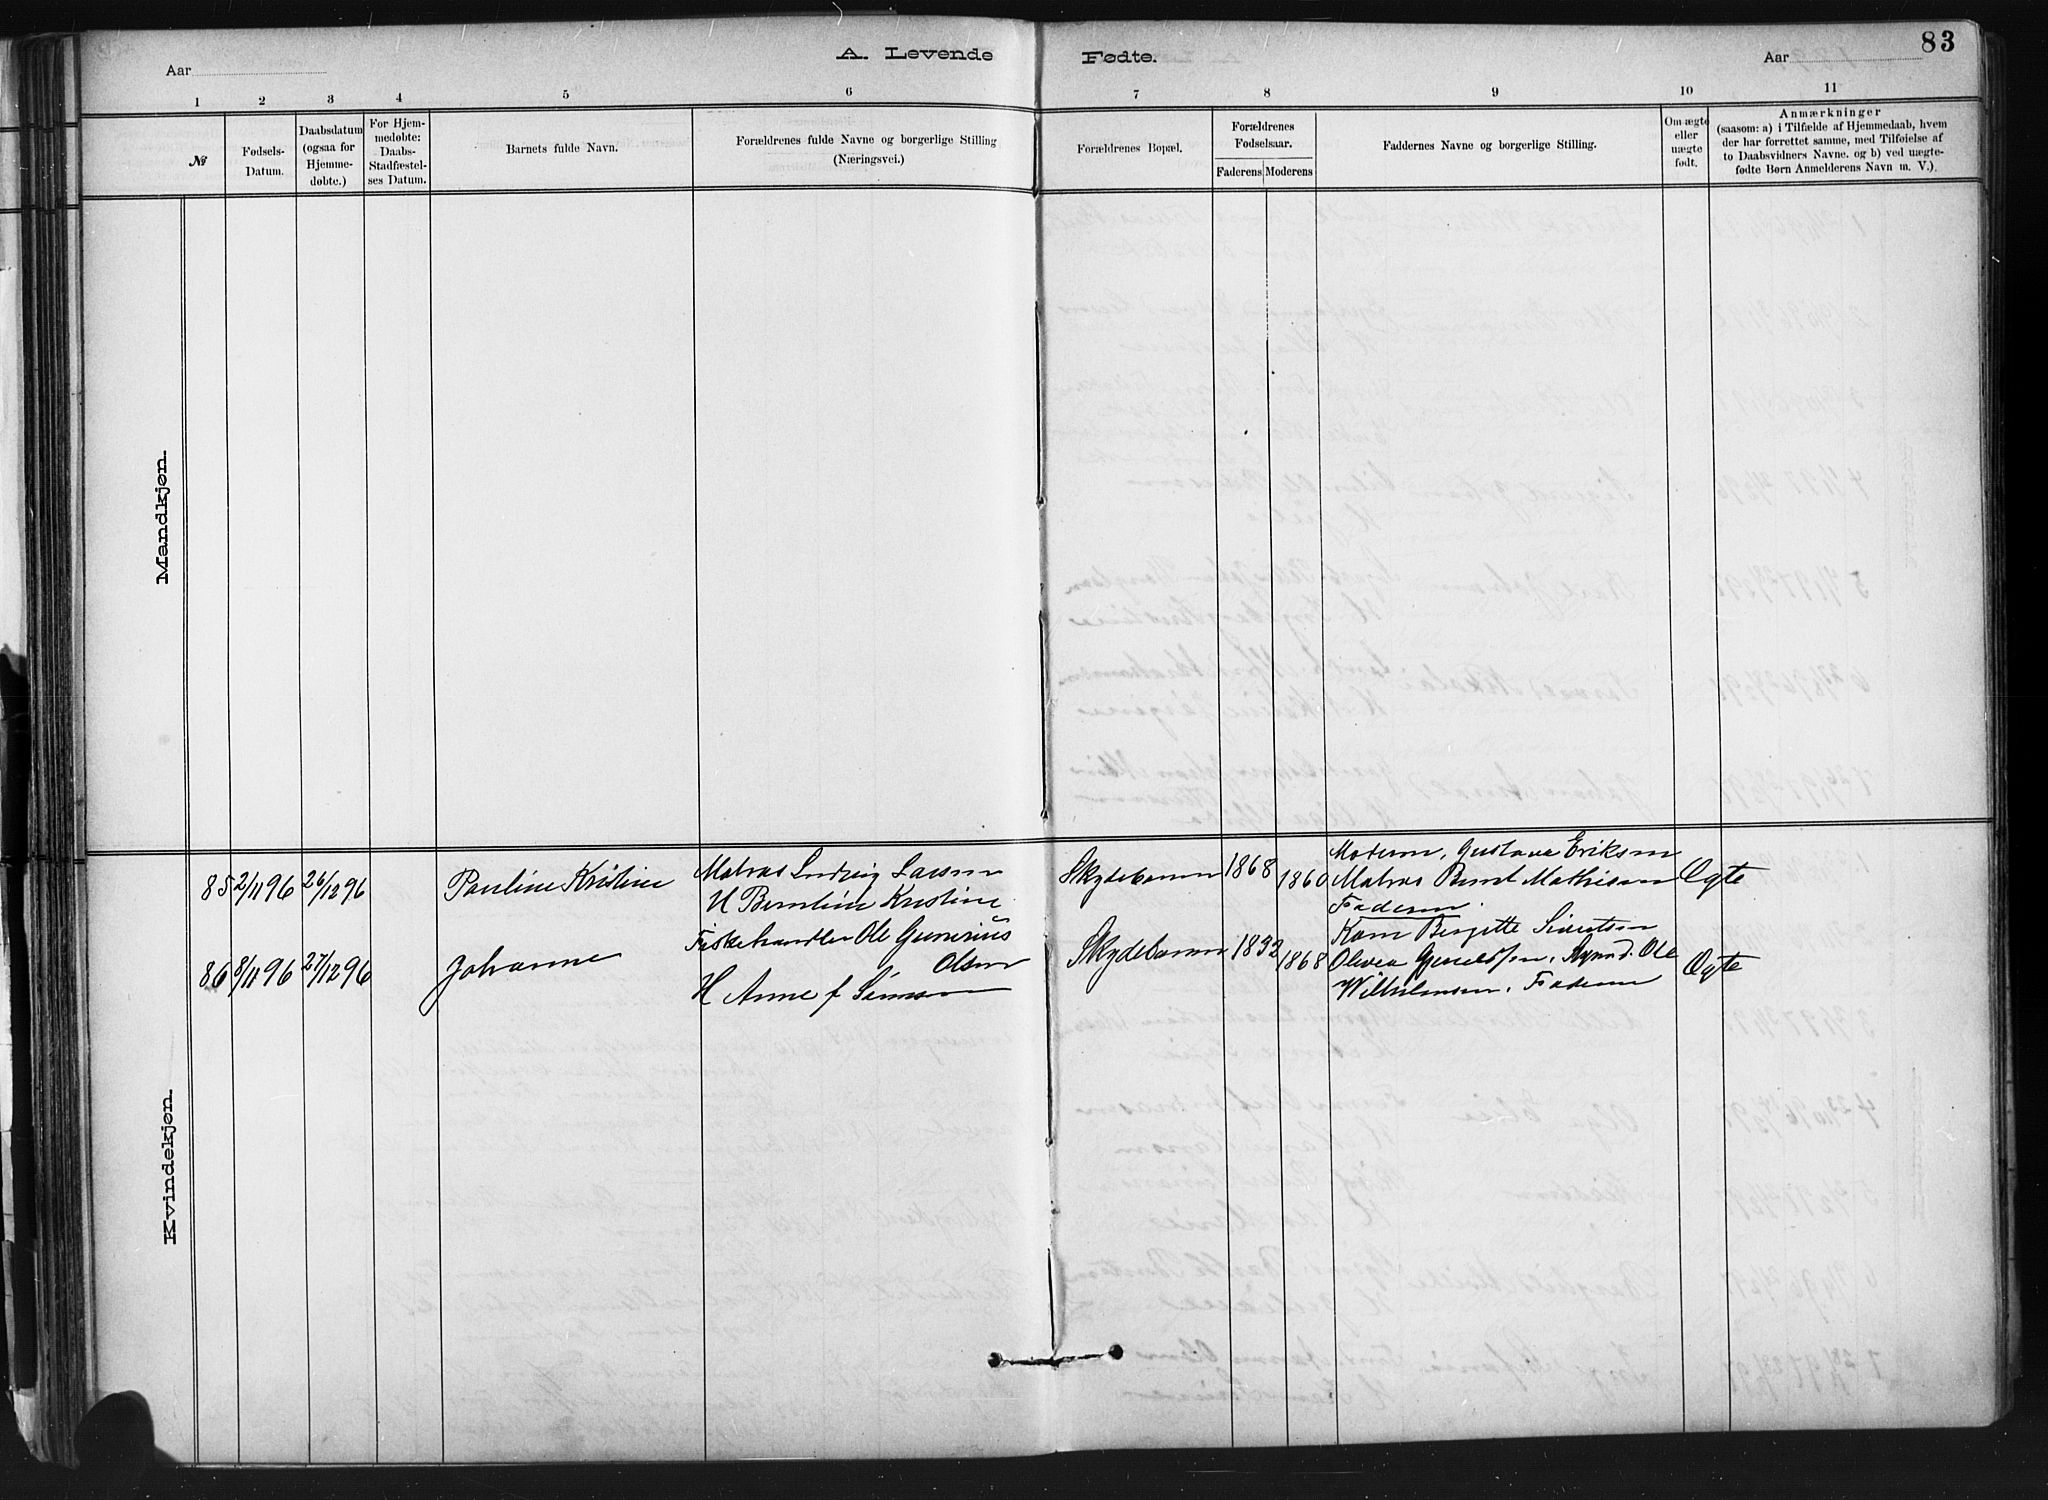 A. Levende Fødte.
83
Aar
Aar
1 2 3 4 5 6 7 8 9 10 11
№
Fødsels-
Datum.
Daabsdatum
(ogsaa for
Hjemme-
døbte.)
For Hjem-
medøbte:
Daabs-
Stadfæstel-
ses Datum.
Barnets fulde Navn.
Forældrenes fulde Navne og borgerlige Stilling
(Næringsvei.)
Forældrenes Bopæl.
Forældrenes
Fødselsaar.
Faderens Moderens
Faddernes Navne og borgerlige Stilling.
Om ægte
eller
uægte
født.
Anmærkninger
(saasom: a) i Tilfælde af Hjemmedaab, hvem
der har forrettet samme, med Tilføielse af
to Daabsvidners Navne. og b) ved uægte-
fødte Børn Anmelderens Navn m. V.).
Mandkjøn.
Kvindekjøn.
85 2/11 96 26/12 96
Pauline Kristine
Matros Ludvig Larsen
H Berntine Kristine
Skydebanen 1868 1860
Moderen, Gustava Eriksen
Matros Bernt Mathisen
Faderen.
Ægte
86 8/11 96 27/12 96
Johanne
Fiskehandler Ole Gunerius
Olsen
H Anne f. Simensen
Skydebanen 1832 1868
Karn Bergitte Sivertsen
Olivea Ole
Wilhelmsen, Faderen
Ægte